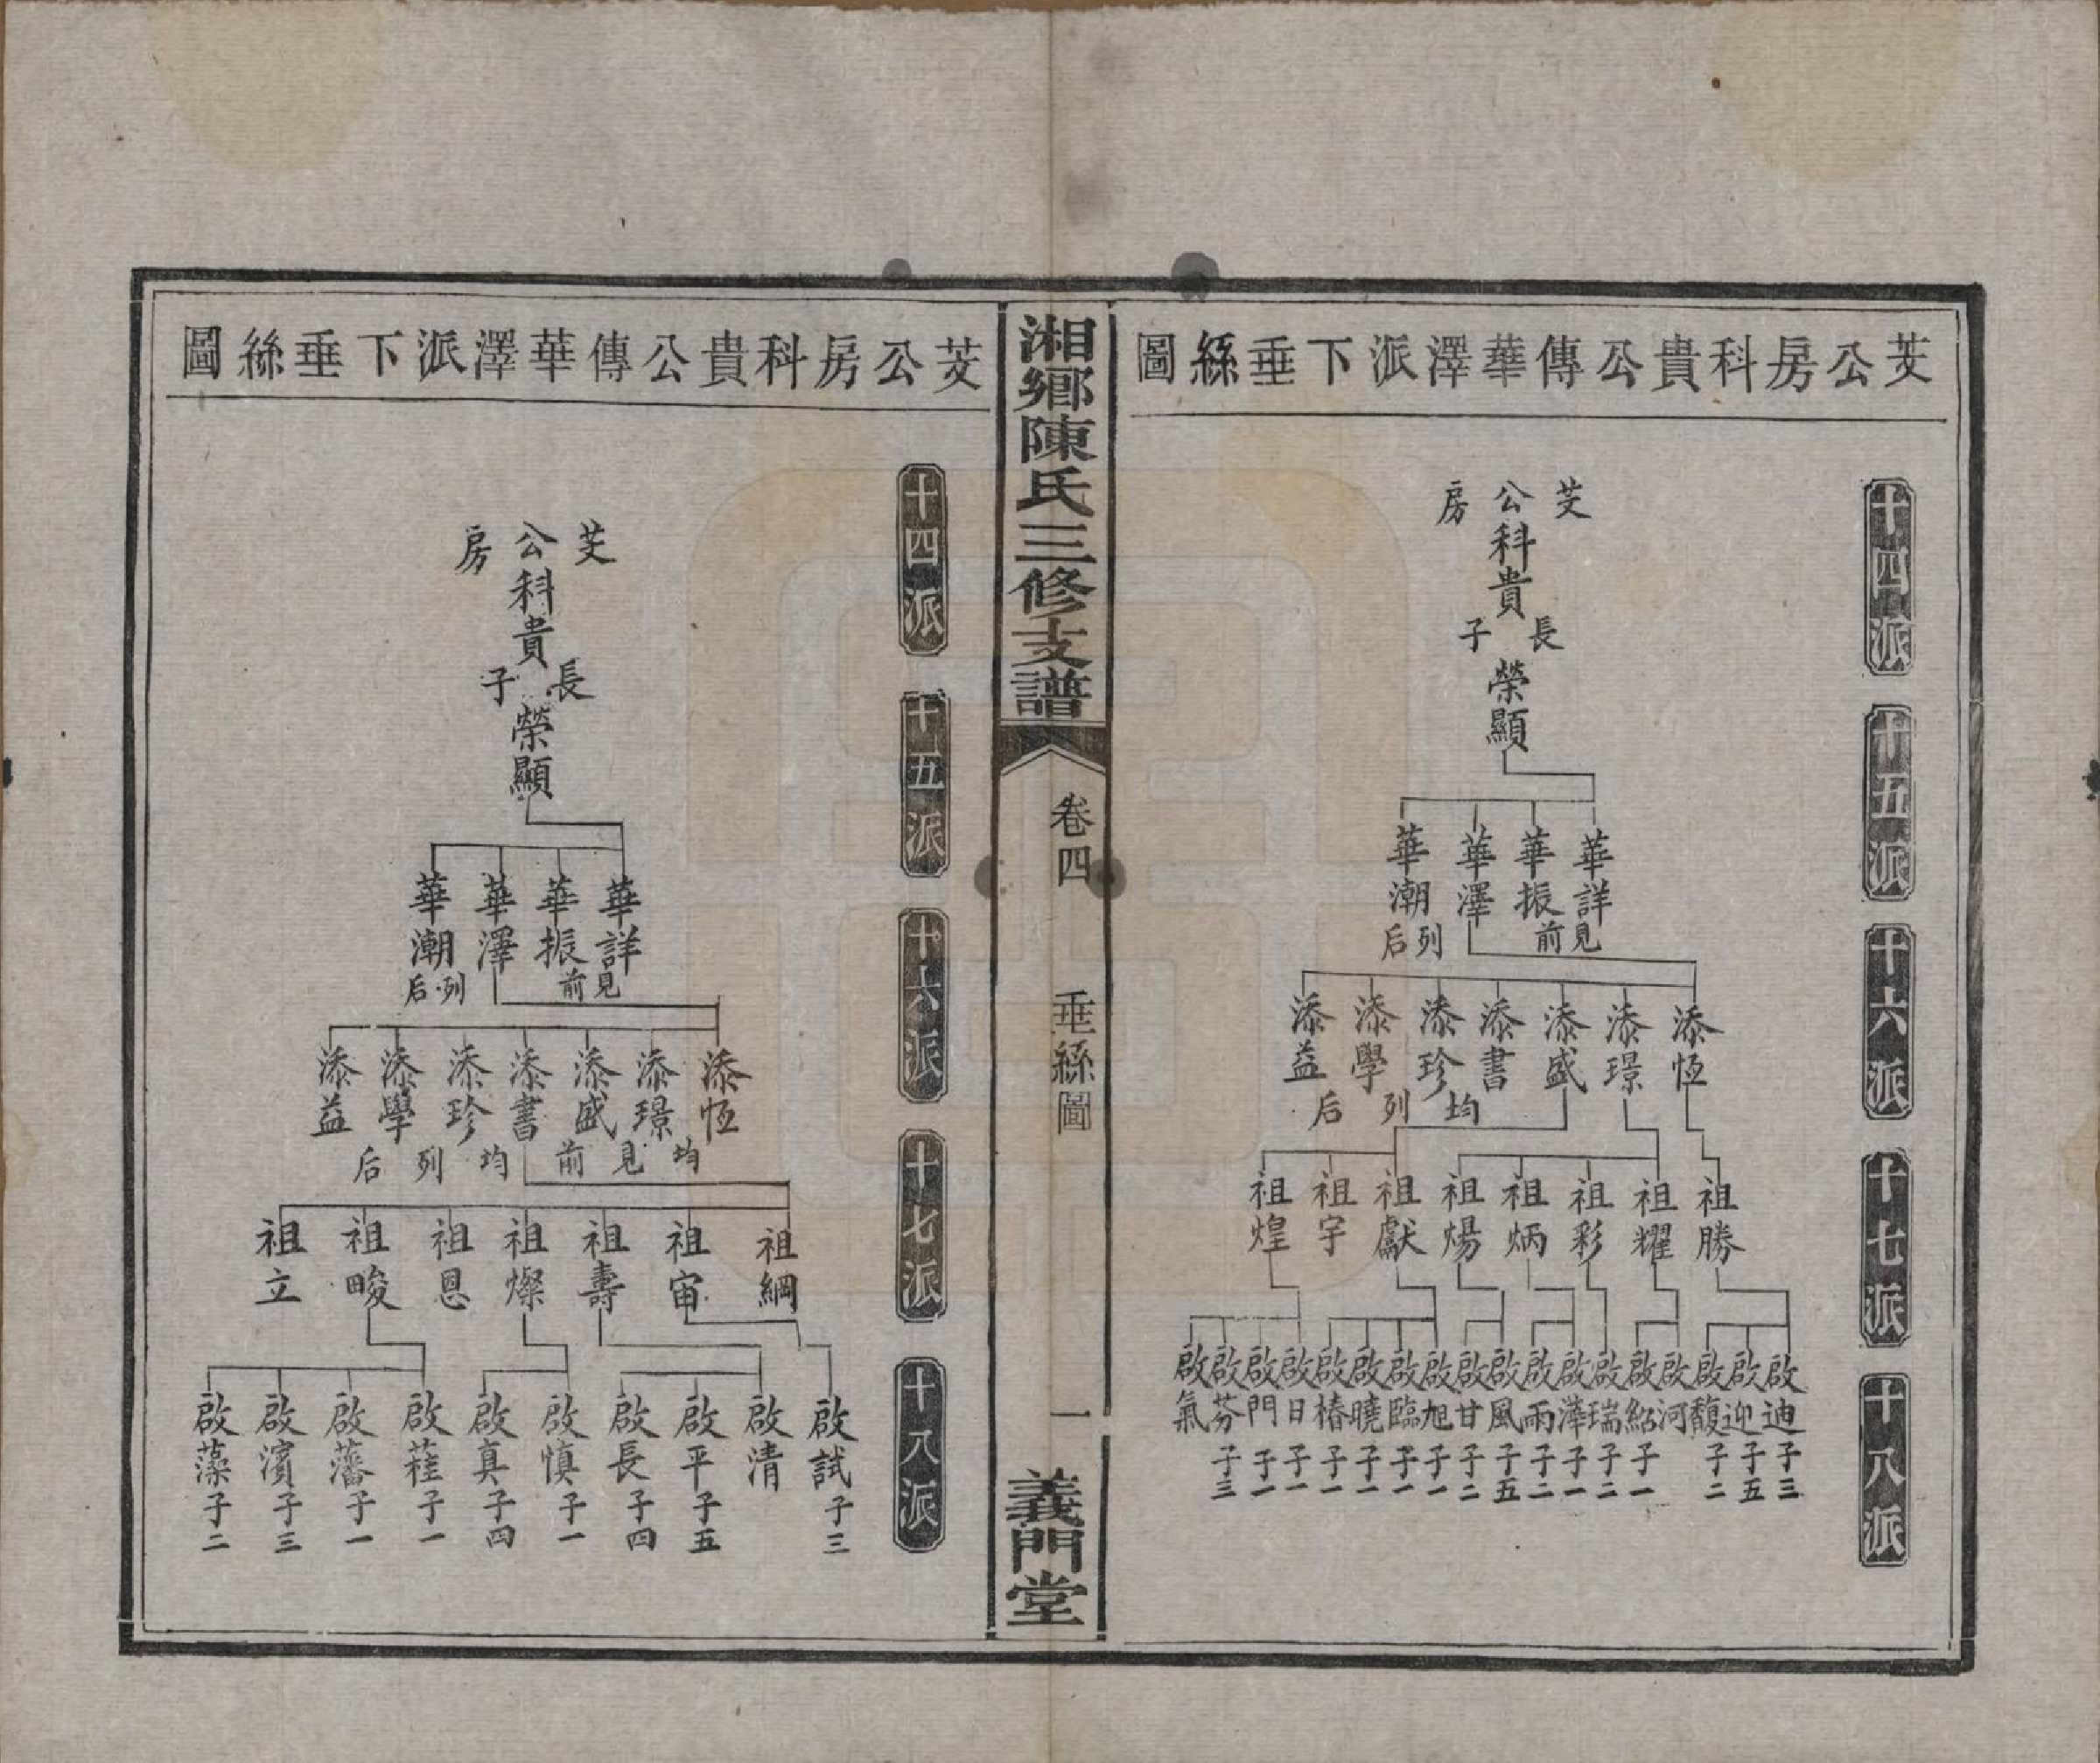 芠公房科貴公傳華澤派下垂絲圖
十四派
十五派
十六派
十七派
十八派
芠公房
科貴
長子
榮顯
華詳
華振
見前
華澤
華潮
列后
添恆
添璟
添盛
添書
添珍
添學
添益
均列后
祖勝
祖耀
祖彩
祖炳
祖煬
祖獻
祖宇
祖煌
啟迪子三
啟迎子五
啟馥子二
啟河
啟紹子一
啟瑞子二
啟澤子一
啟雨子二
啟風子五
啟甘子二
啟旭子一
啟臨子一
啟曉子一
啟椿子一
啟日子一
啟門子一
啟芬子三
啟氣
湘鄉陳氏三修支譜
卷四
垂絲圖
一
義門堂
芠公房科貴公傳華澤派下垂絲圖
十四派
十五派
十六派
十七派
十八派
芠公房
科貴
長子
榮顯
華詳
華振
見前
華澤
華潮
列后
添恆
添璟
添盛
均見前
添書
添珍
添學
添益
均列后
祖綱
祖甯
祖壽
祖燦
祖恩
祖畯
祖立
啟試子三
啟清
啟平子五
啟長子四
啟慎子一
啟真子四
啟蓕子一
啟藩子一
啟濱子三
啟藻子二